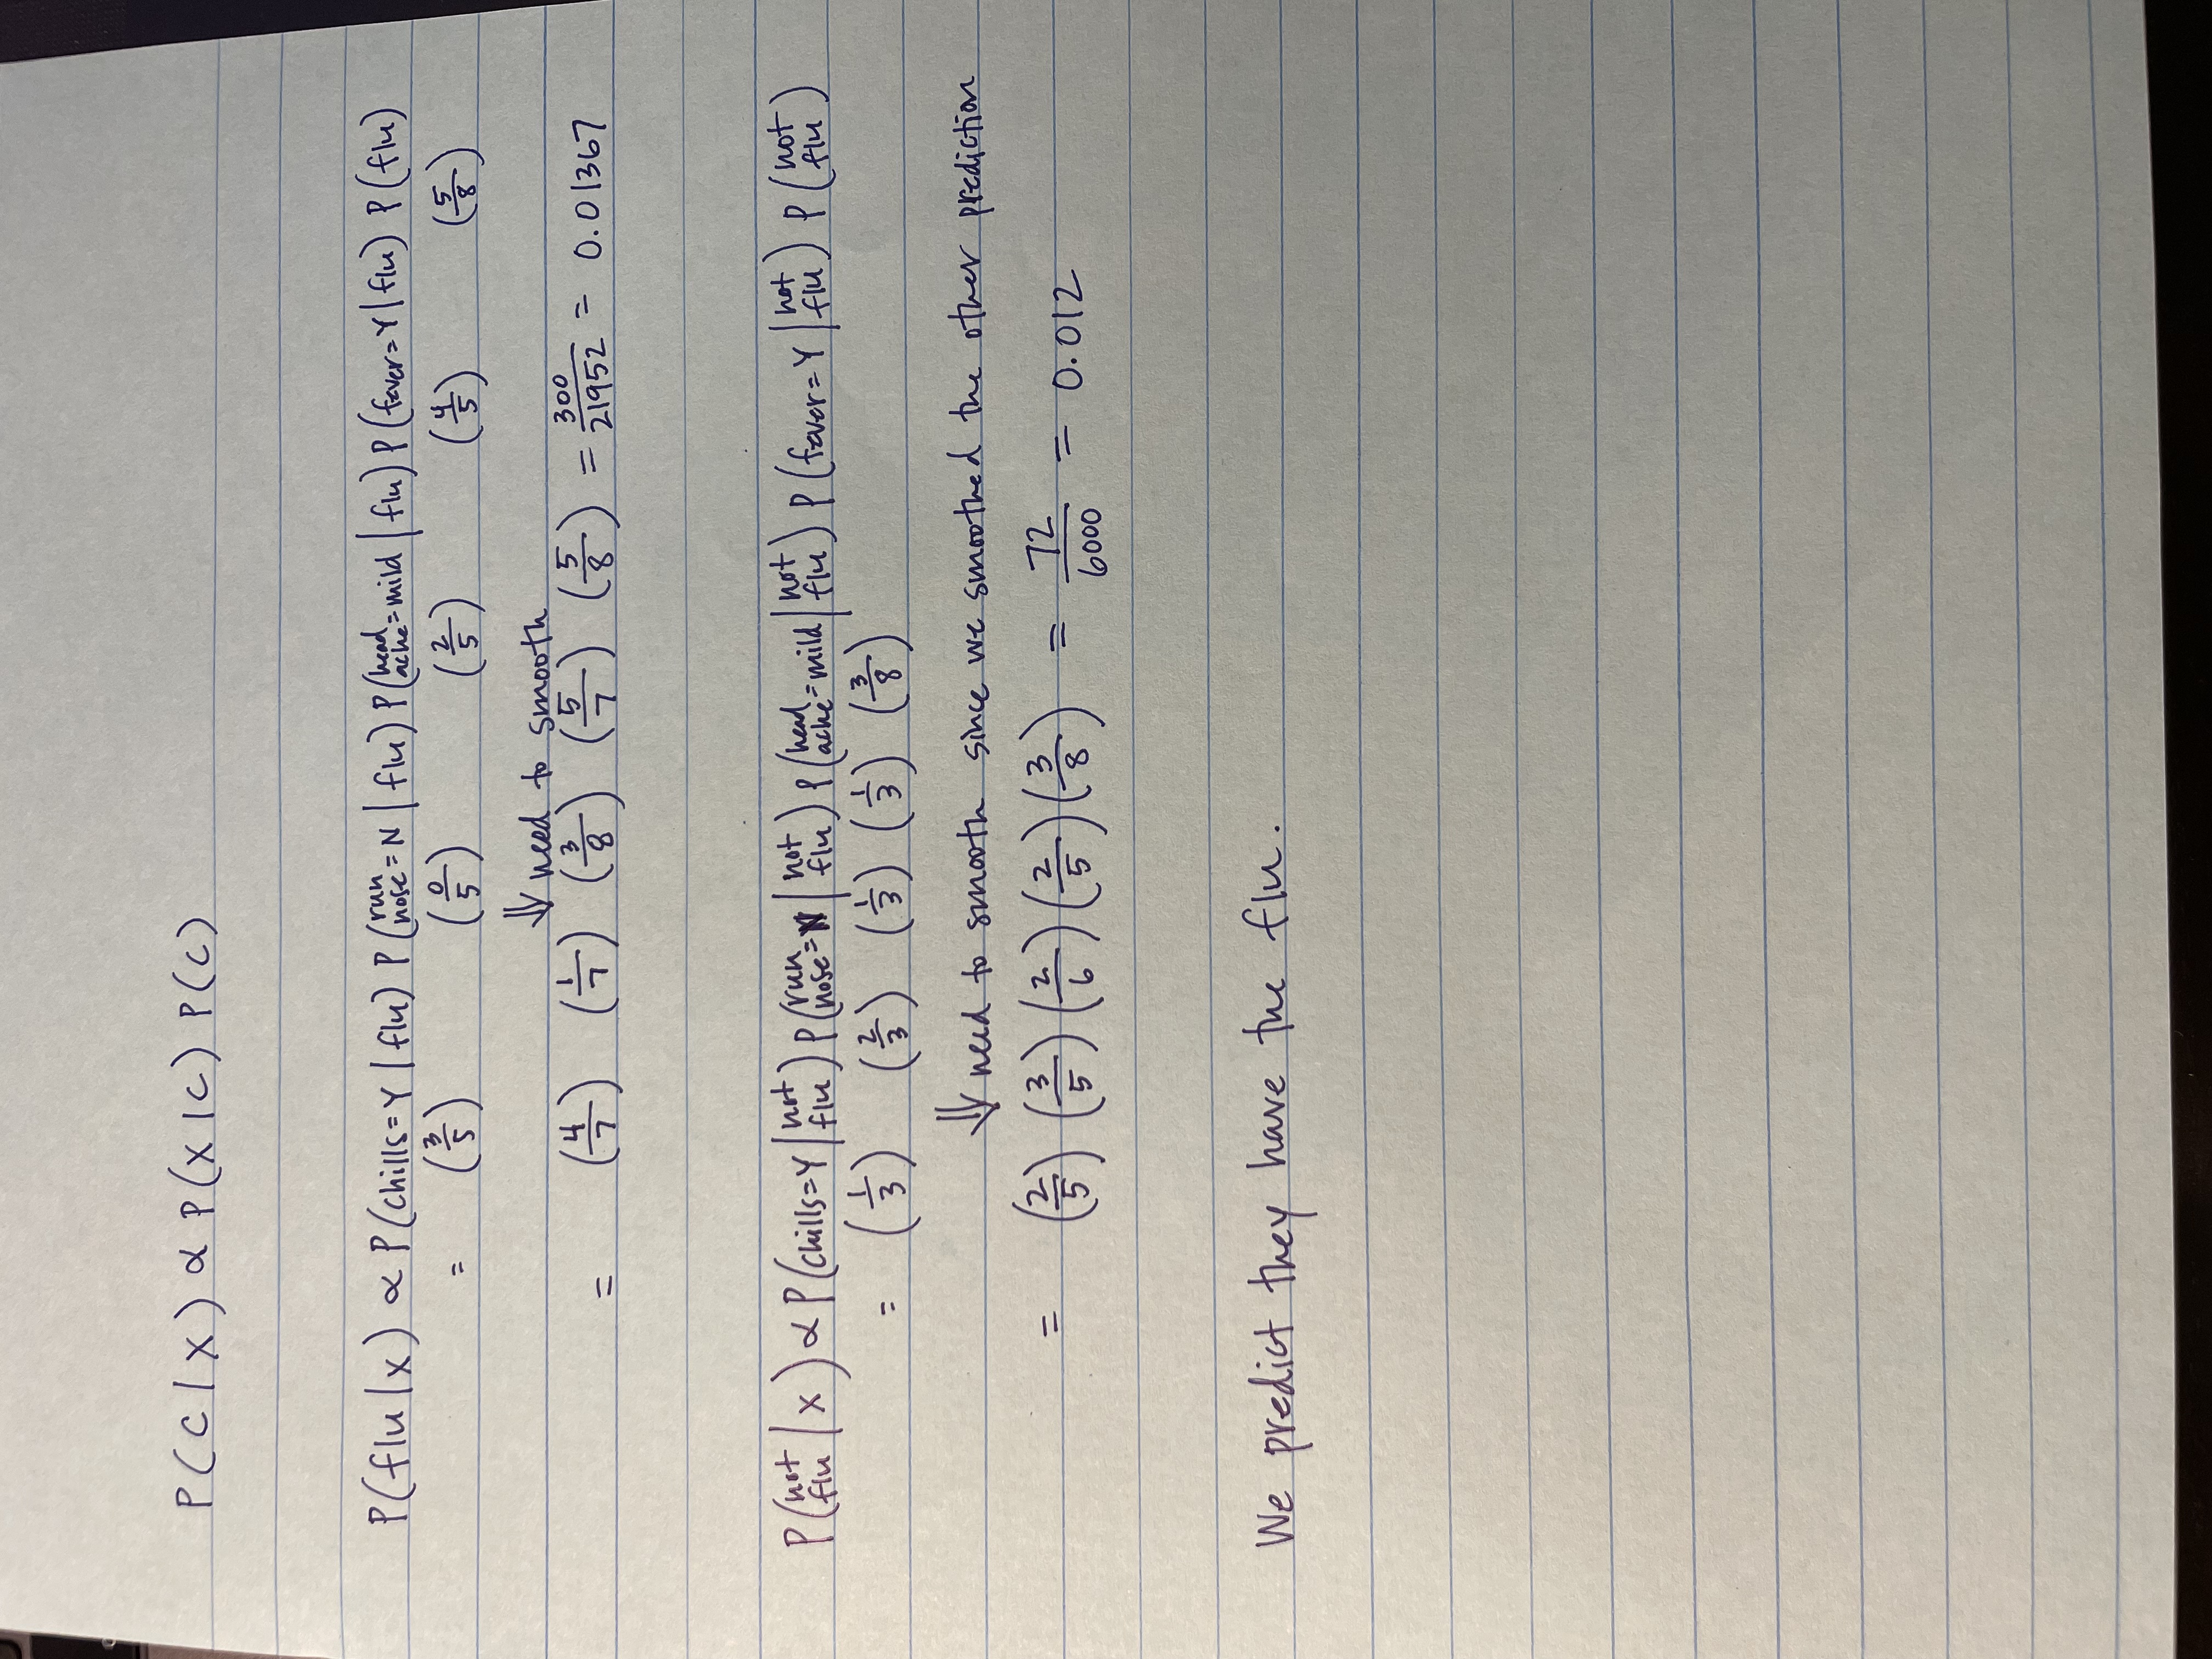 P(C|X) ∝ P(X|C) P(C)
P(flu|x) ∝ P(chills=Y|flu) P(run nose=N|flu) P(head ache=mild|flu) P(fever=Y|flu) P(flu)
= (3/5) (0/5) (2/5) (4/5) (5/8)
⇓ need to smooth
= (4/7) (1/7) (3/8) (5/7) (5/8) = 300/21952 = 0.01367
P(not flu|x) ∝ P(chills=Y|not flu) P(run nose=N|not flu) P(head ache=mild|not flu) P(fever=Y|not flu) P(not flu)
= (1/3) (2/3) (1/3) (1/3) (3/8)
⇓ need to smooth since we smoothed the other prediction
= (2/5) (3/5) (2/6) (2/5) (3/8) = 72/6000 = 0.012
We predict they have the flu.